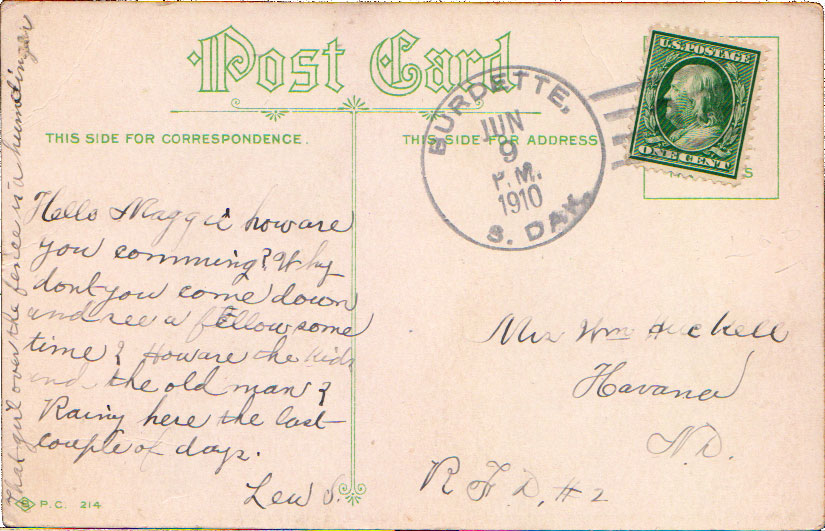 Post Card
THIS SIDE FOR CORRESPONDENCE.
THIS SIDE FOR ADDRESS
BURDETTE,
JUN
9
P.M.
1910
S. DAK.
U.S. POSTAGE
ONE CENT
S
Hello Maggie how are
you comming? Why
dont you come down
and see a fellow some
time? How are the kids
and the old man?
Rainy here the last
couple of days.
Lew S.
That girl over the fence is a humdinger
Mrs Wm Huckell
Havana
N.D.
R F D, #2
P.C. 214